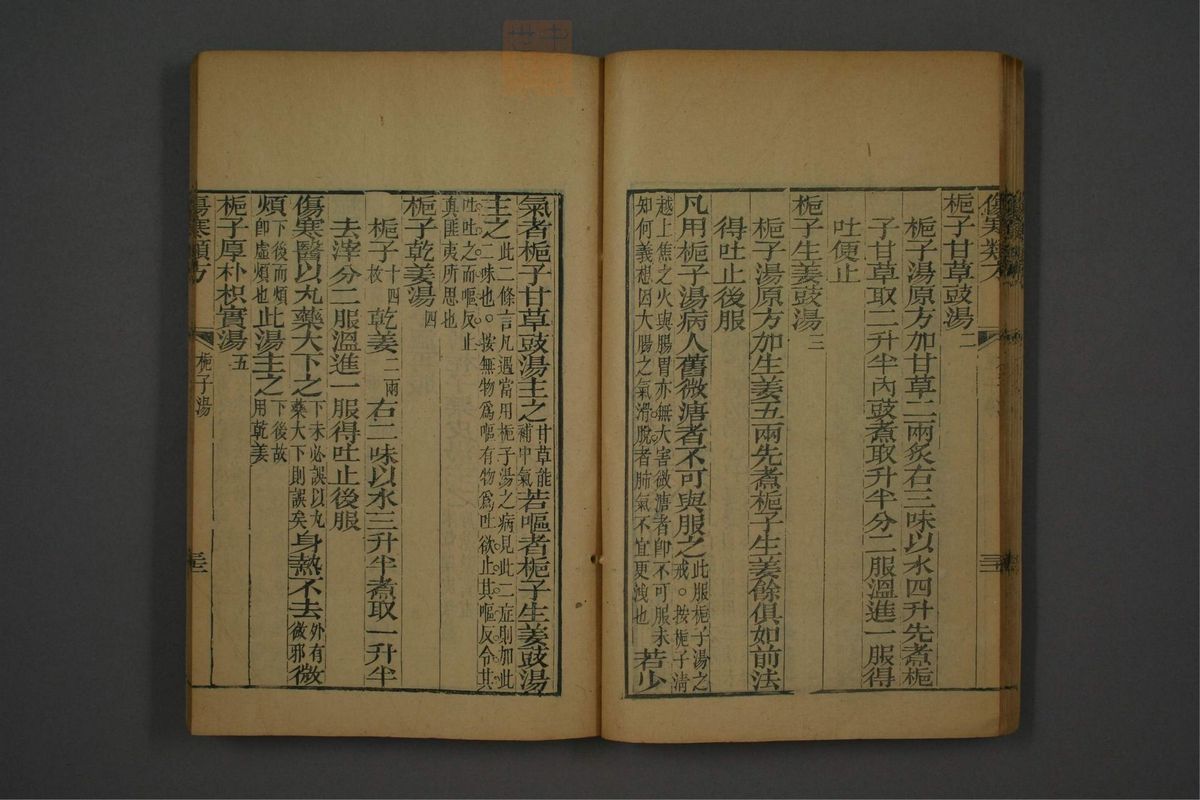 傷寒類方
梔子甘草豉湯二
梔子湯原方加甘草二兩炙右三味以水四升先煮梔
子甘草取二升半內豉煮取升半分二服溫進一服得
吐便止
梔子生姜豉湯三
梔子湯原方加生姜五兩先煮梔子生姜餘俱如前法
得吐止後服
凡用梔子湯病人舊微溏者不可與服之此服梔子湯之戒。按梔子清越上焦之火與腸胃亦無大害微溏者卽不可服未知何義想因大腸之氣滑脫者肺氣不宜更洩也若少
氣者梔子甘草豉湯主之甘草能補中氣若嘔者梔子生姜豉湯
主之此二條言凡遇當用梔子湯之病見此二症則加此二味也。按無物爲嘔有物爲吐欲止其嘔反令其吐吐之而嘔反止眞匪夷所思也
梔子乾姜湯四
梔子十四枚乾姜二兩右二味以水三升半煮取一升半
去滓分二服溫進一服得吐止後服
傷寒醫以丸藥大下之下未必誤以丸藥大下則誤矣身熱不去外有微邪微
煩下後而煩卽虛煩也此湯主之下後故用乾姜
梔子厚朴枳實湯五
傷寒類方
梔子湯
三